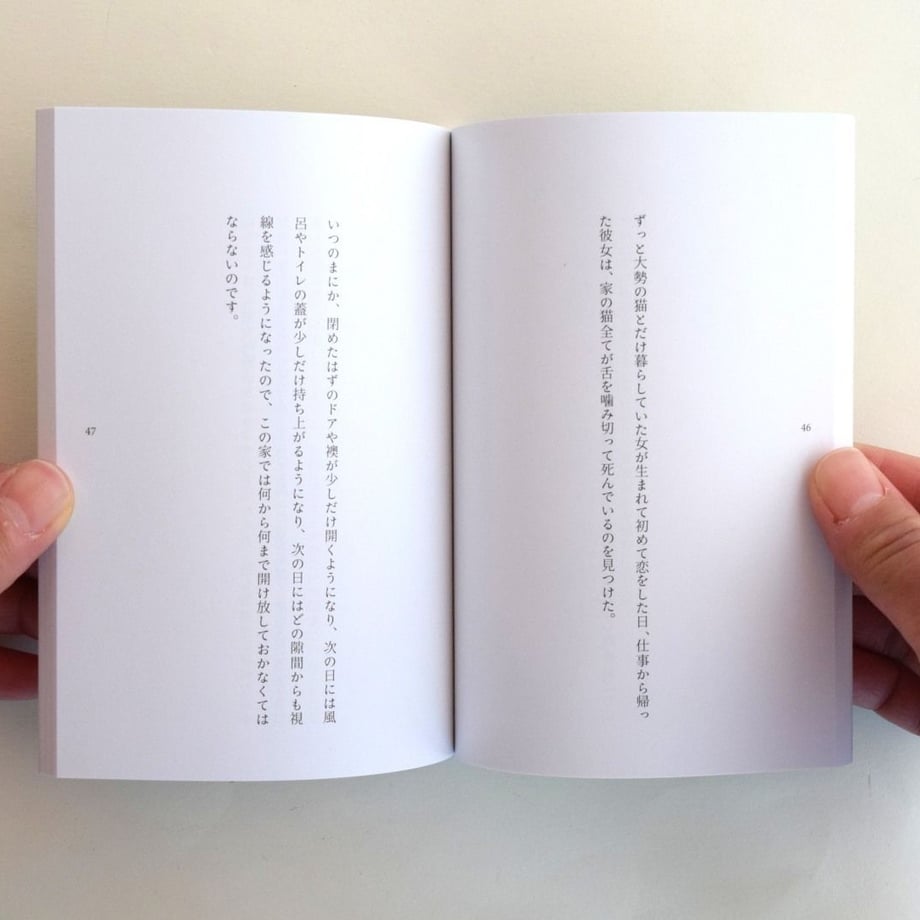 ずっと大勢の猫とだけ暮らしていた女が生まれて初めて恋をした日、仕事から帰っ
た彼女は、家の猫全てが舌を噛み切って死んでいるのを見つけた。
46
いつのまにか、閉めたはずのドアや襖が少しだけ開くようになり、次の日には風
呂やトイレの蓋が少しだけ持ち上がるようになり、次の日にはどの隙間からも視
線を感じるようになったので、この家では何から何まで開け放しておかなくては
ならないのです。
47